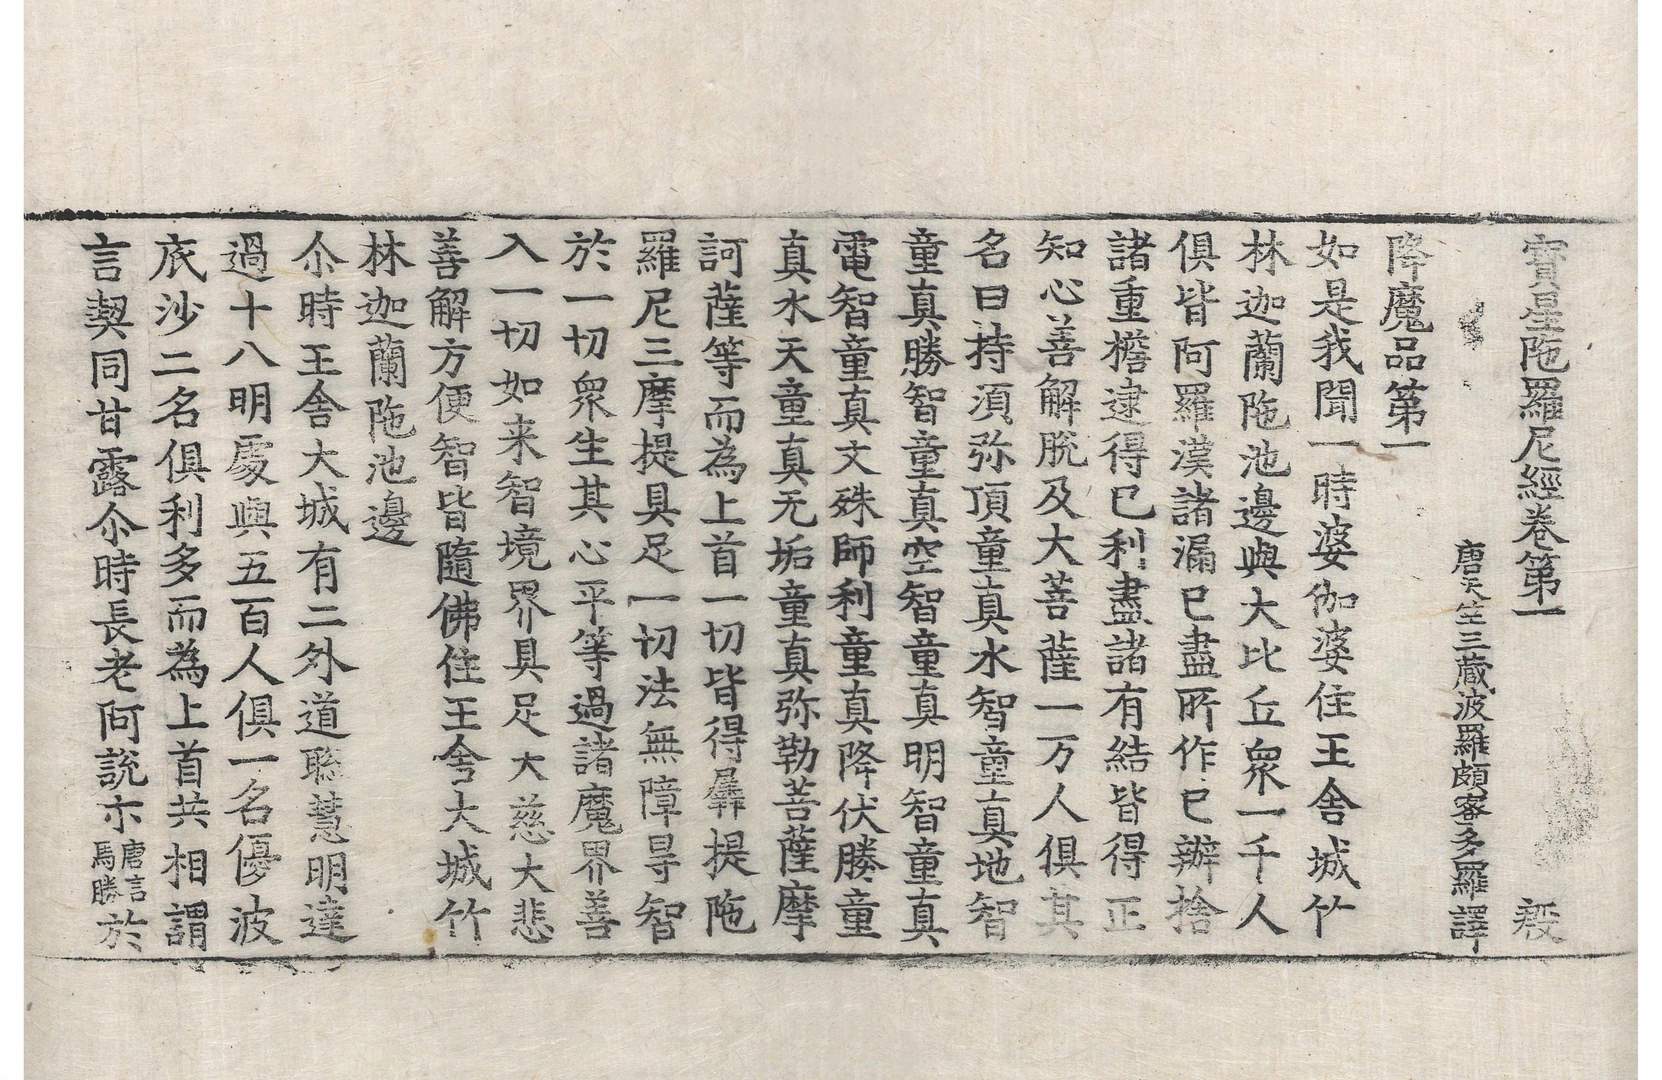 寶星陁羅尼經卷第一 㲉
唐天竺三藏波羅頗蜜多羅譯
降魔品第一
如是我聞一時婆伽婆住王舍城竹
林迦蘭陁池邊與大比丘衆一千人
俱皆阿羅漢諸漏已盡所作已辦捨
諸重擔逮得已利盡諸有結皆得正
知心善解脫及大菩薩一万人俱其
名曰持須弥頂童真水智童真地智
童真勝智童真空智童真明智童真
電智童真文殊師利童真降伏勝童
真水天童真无垢童真弥勒菩薩摩
訶薩等而為上首一切皆得羼提陁
羅尼三摩提具足一切法無障㝵智
於一切衆生其心平等過諸魔界善
入一切如来智境界具足大慈大悲
善解方便智皆隨佛住王舍大城竹
林迦蘭陁池邊
尒時王舍大城有二外道聦慧明達
過十八明處與五百人俱一名優波
底沙二名俱利多而為上首共相謂
言契同甘露尒時長老阿說示唐言馬勝於